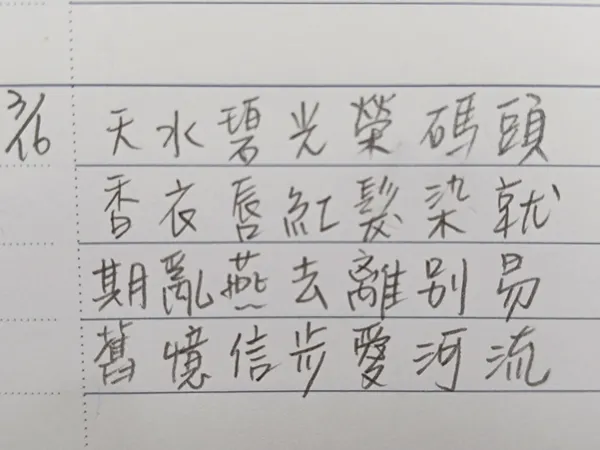 3/16 天水碧光榮碼頭
香衣唇紅髮染就
期亂燕去離別易
舊憶信步愛河流